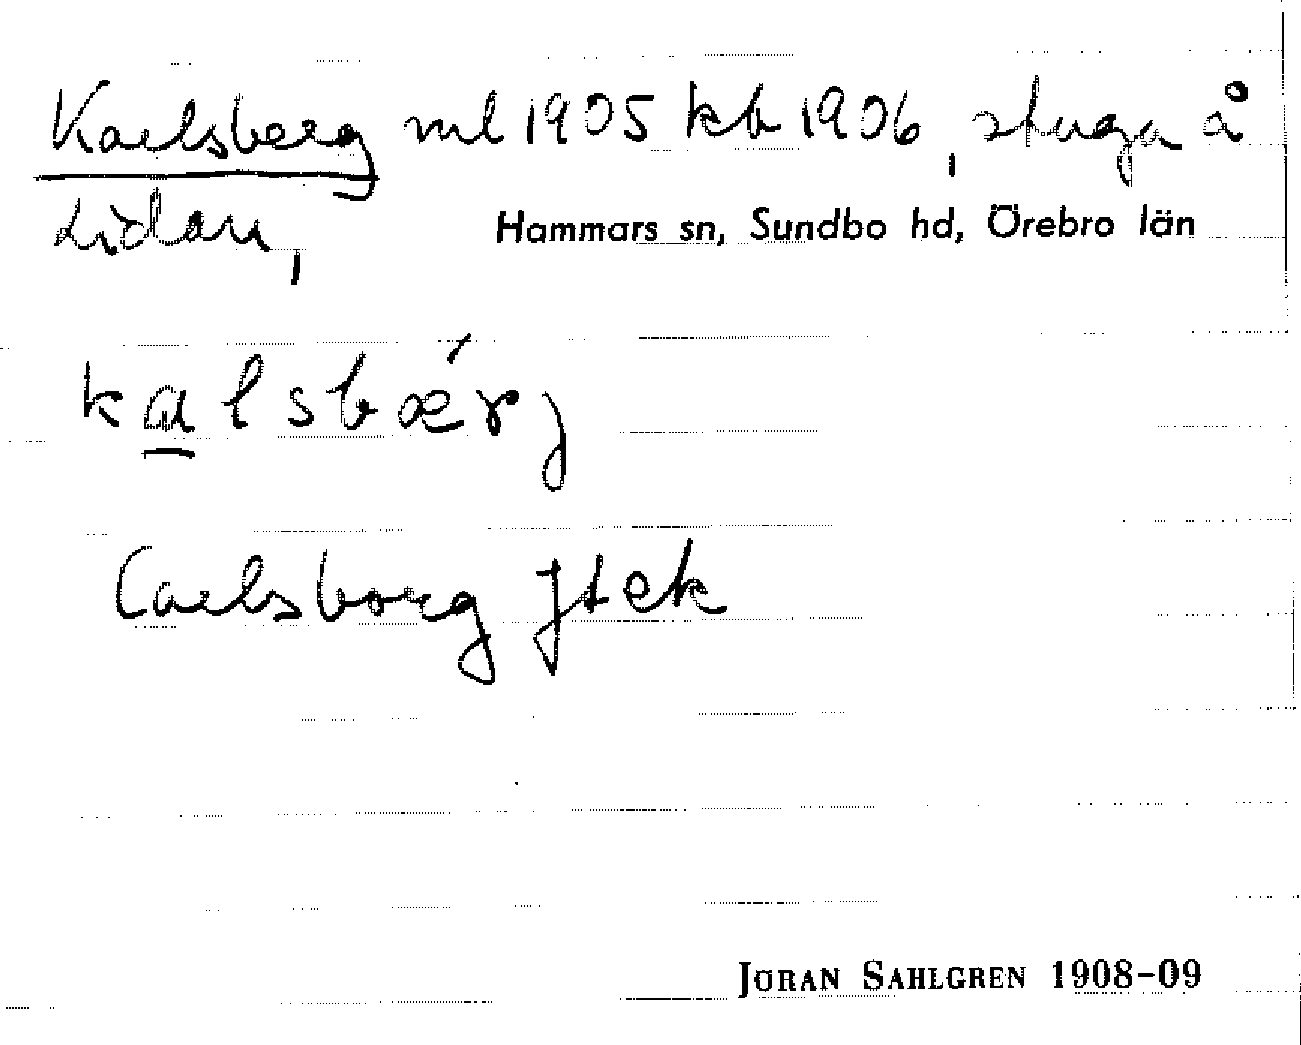 Karlsberg ml 1905 kb 1906, stuga å
Lidan,
Hammars sn, Sundbo hd, Örebro län
kalsbærj
Carlsborg Jtek
JÖRAN SAHLGREN 1908-09